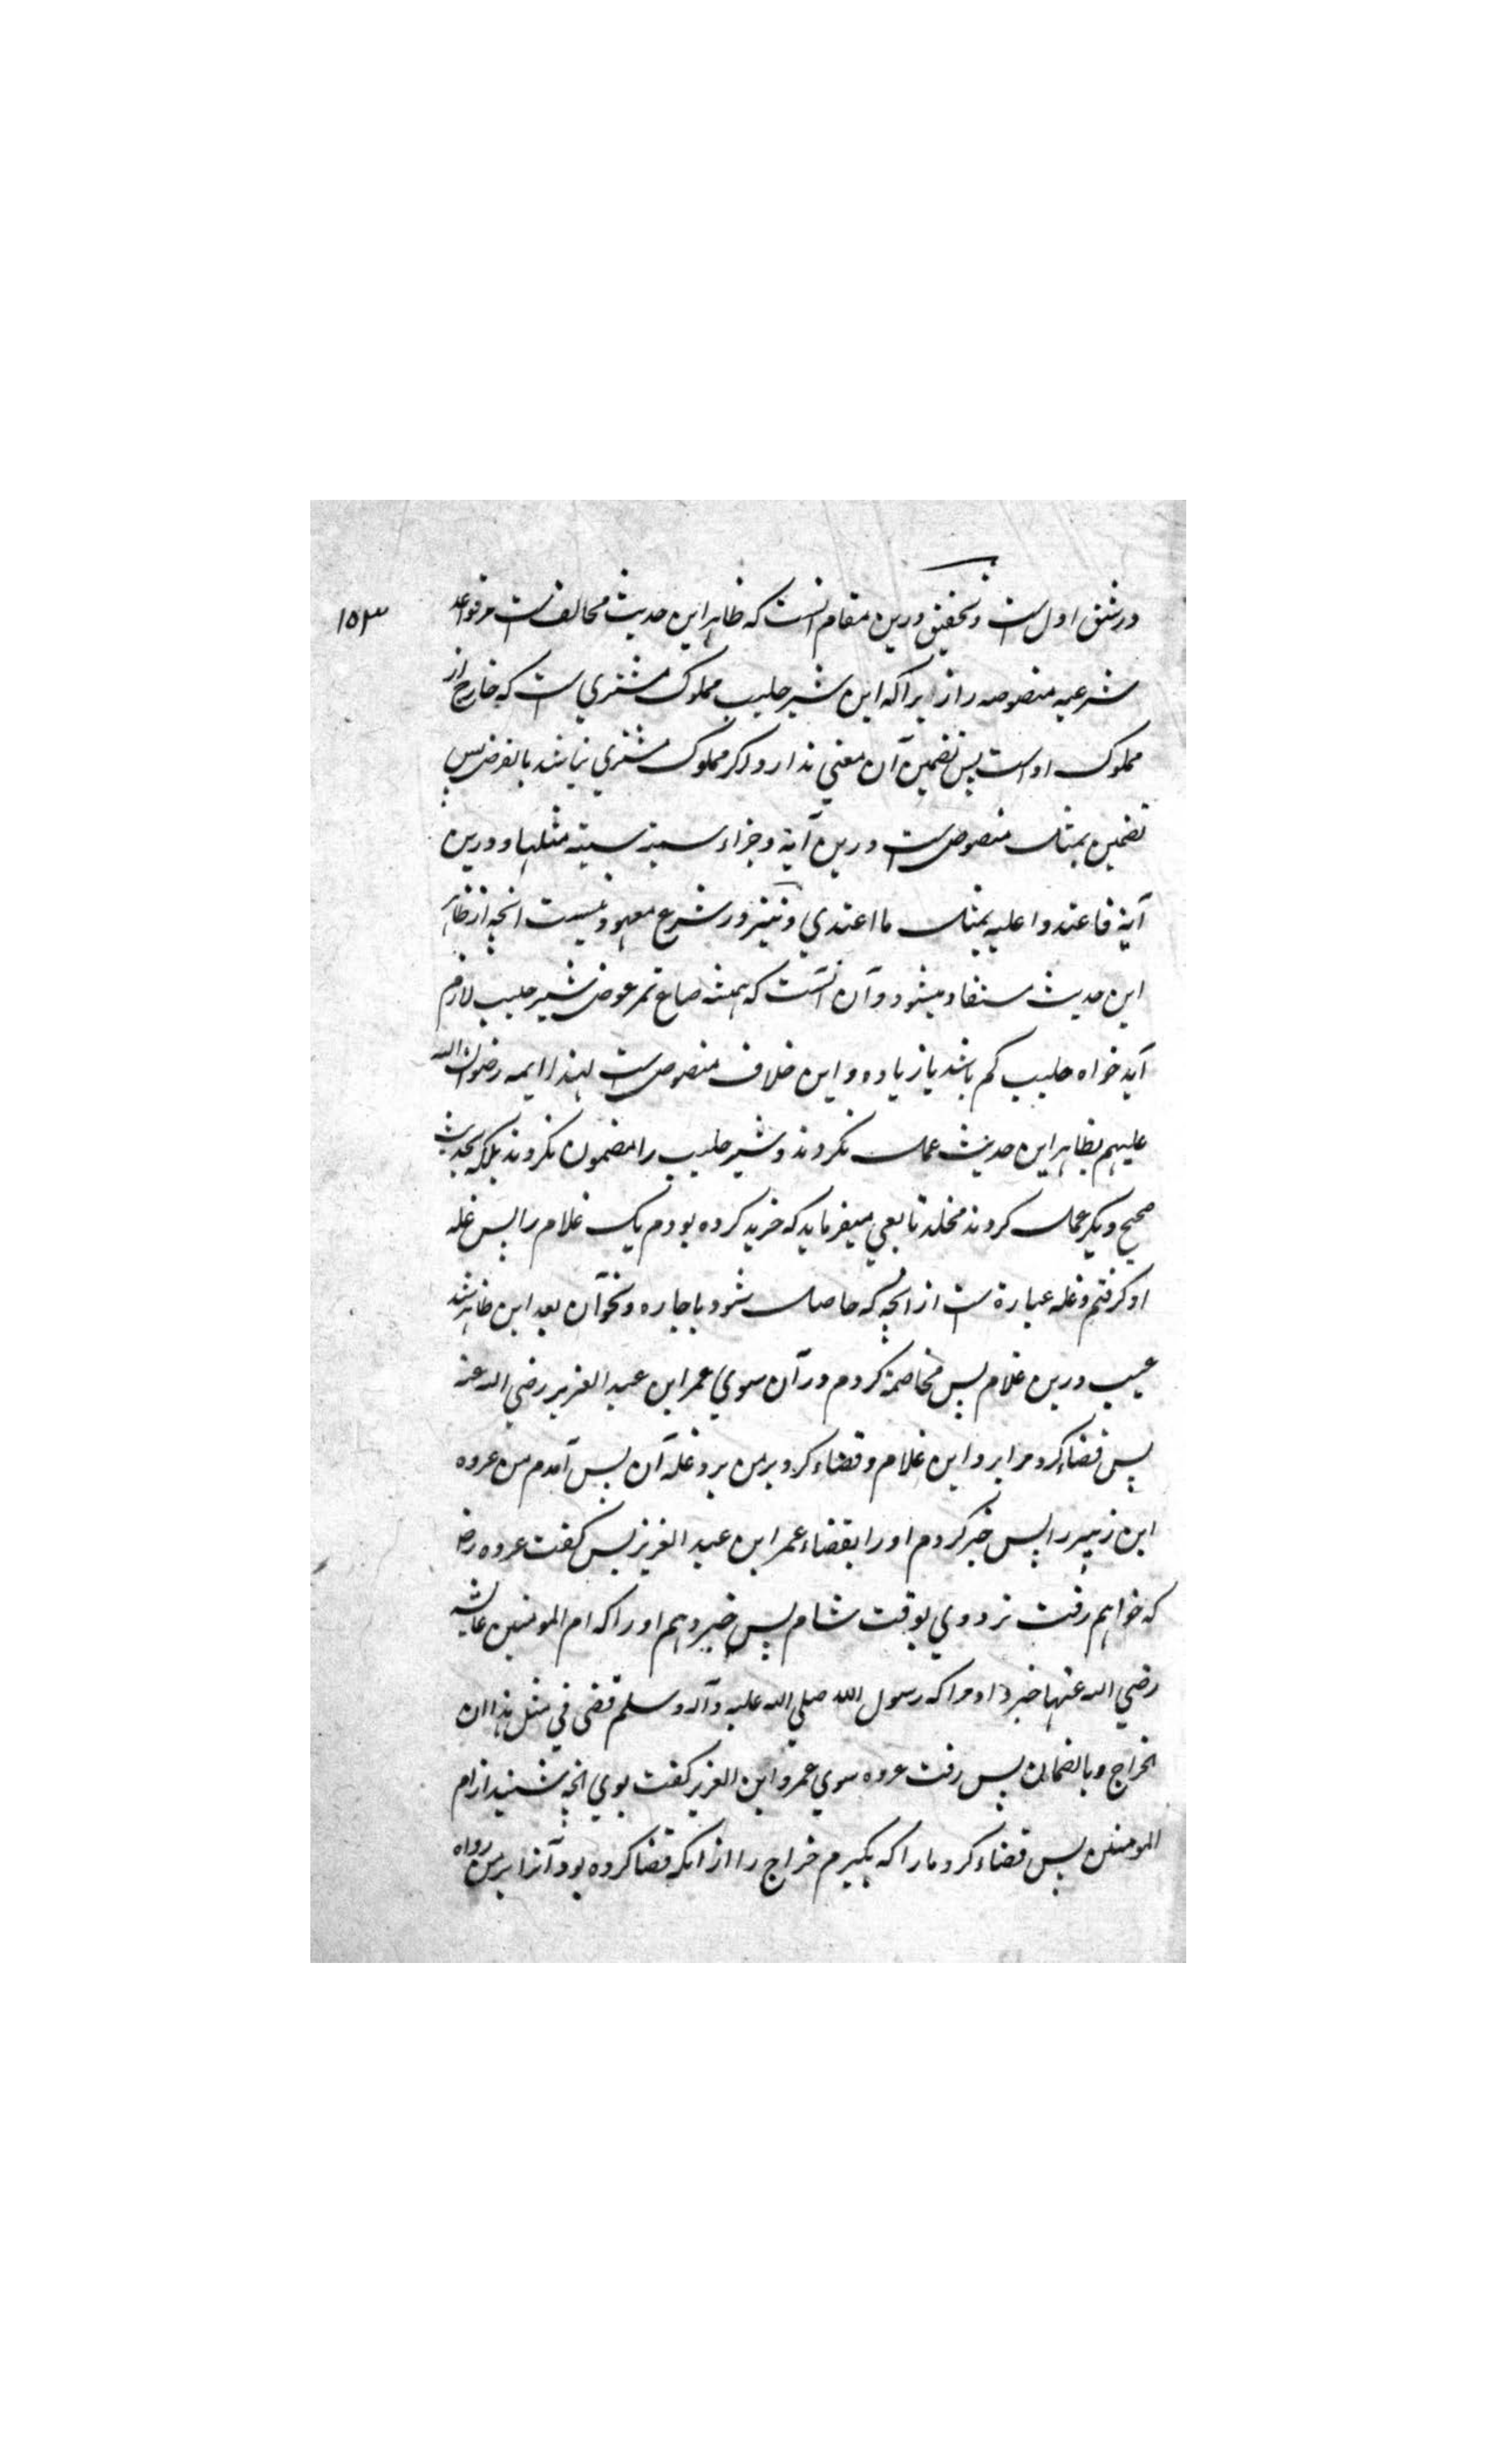 ۱۵۳
در شق اول است و تحقیق درین مقام آنست که ظاهر این حدیث مخالف است مر قواعد
شرعیه منصوصه را زیراکه این شیر حلیب مملوک مشتری است که خارج از
مملوک اوست پس تضمین آن معنی ندارد و اگر مملوک مشتری نباشد بالفرض پس
تضمین بمثل منصوص است درین آیة و جزاء سیئة سیئة مثلها و درین
آیة فاعتدوا علیه بمثل ما اعتدی و نیز در شرع معهود نیست انچه از ظاهر
این حدیث مستفاد میشود و آن آنست که همیشه صاع تمر عوض شیر حلیب لازم
آید خواه حلیب کم باشد یا زیاده و این خلاف منصوص است لهذا ایمه رضوان الله
علیهم بظاهر این حدیث عمل نکردند و شیر حلیب را مضمون نکردند بلکه بحدیث
صحیح دیگر عمل کردند مخلد تابعی میفرماید که خرید کرده بودم یک غلام را پس غله
او گرفتم و غله عبارة ست از انچه که حاصل شود باجاره و نحو آن بعد این ظاهر شد
عیب درین غلام پس مخاصمة کردم در آن سوی عمر ابن عبد العزیز رضی الله عنه
پس قضاء کرد مرا برد این غلام و قضاء کرد بر من برد غله آن پس آمدم من عروه
ابن زبیر را پس خبر کردم او را بقضاء عمر ابن عبد العزیز پس گفت عروه رض
که خواهم رفت نزد وی بوقت شام پس خبر دهم او را که ام المومنین عایشه
رضی الله عنها خبر داد مرا که رسول الله صلی الله علیه و آله و سلم قضی فی مثل هذا ان
الخراج وبالضمان پس رفت عروه سوی عمرو ابن العزیز گفت بوی انچه شنید از ام
المومنین پس قضاء کرد مارا که بگیرم خراج را از انکه قضا کرده بود آنرا بر من رواه